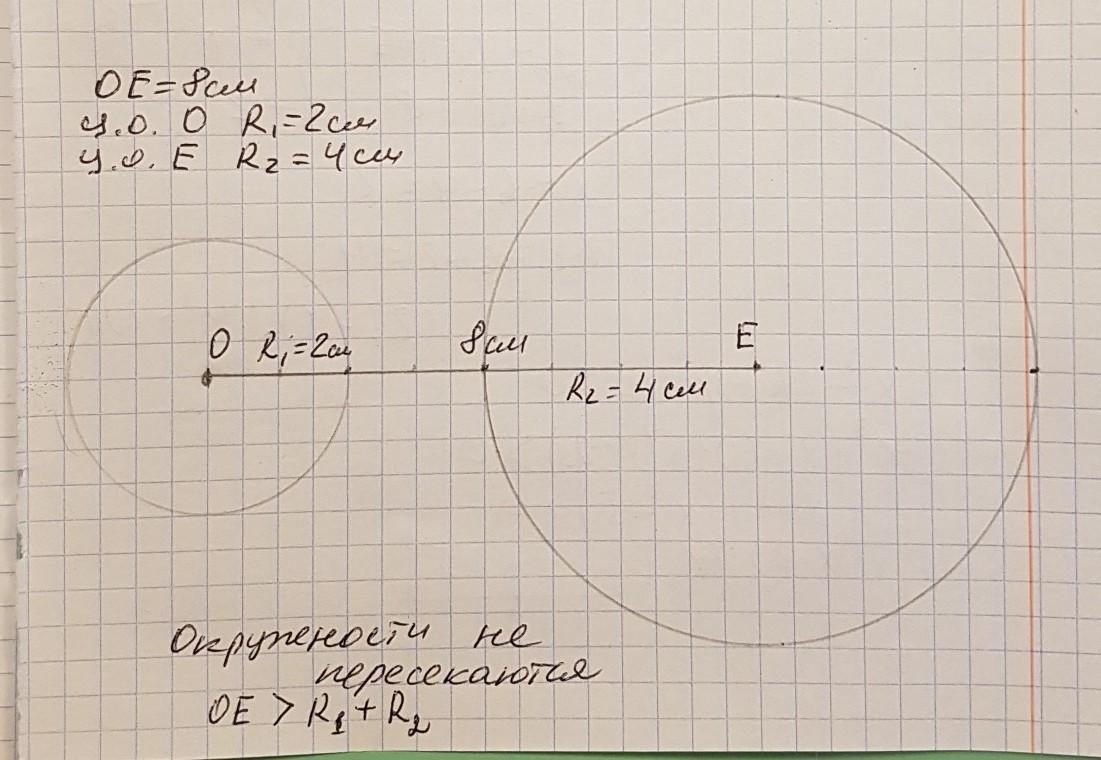 OE = 8см
ц.о. O R₁ = 2см
ц.о. E R₂ = 4 см
O R₁ = 2см 8см E
R₂ = 4 см
Окружности не
пересекаются
OE > R₁ + R₂